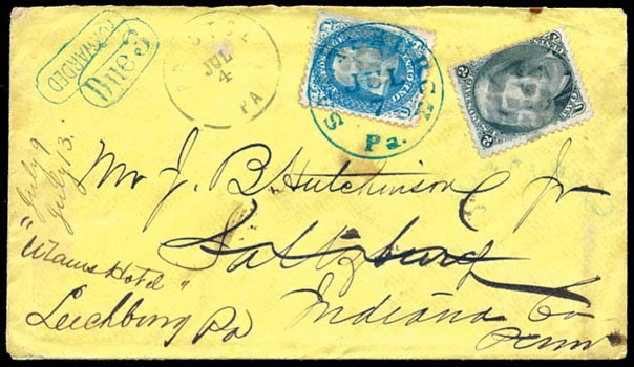 FORWARDED
Due 3
JUL
4
PA
Pa.
July 9
July 13.
Mr J. B. Hutchinson Jr
Saltzburg
Indiana Co
Penn
Hotel"
Leechburg Pa